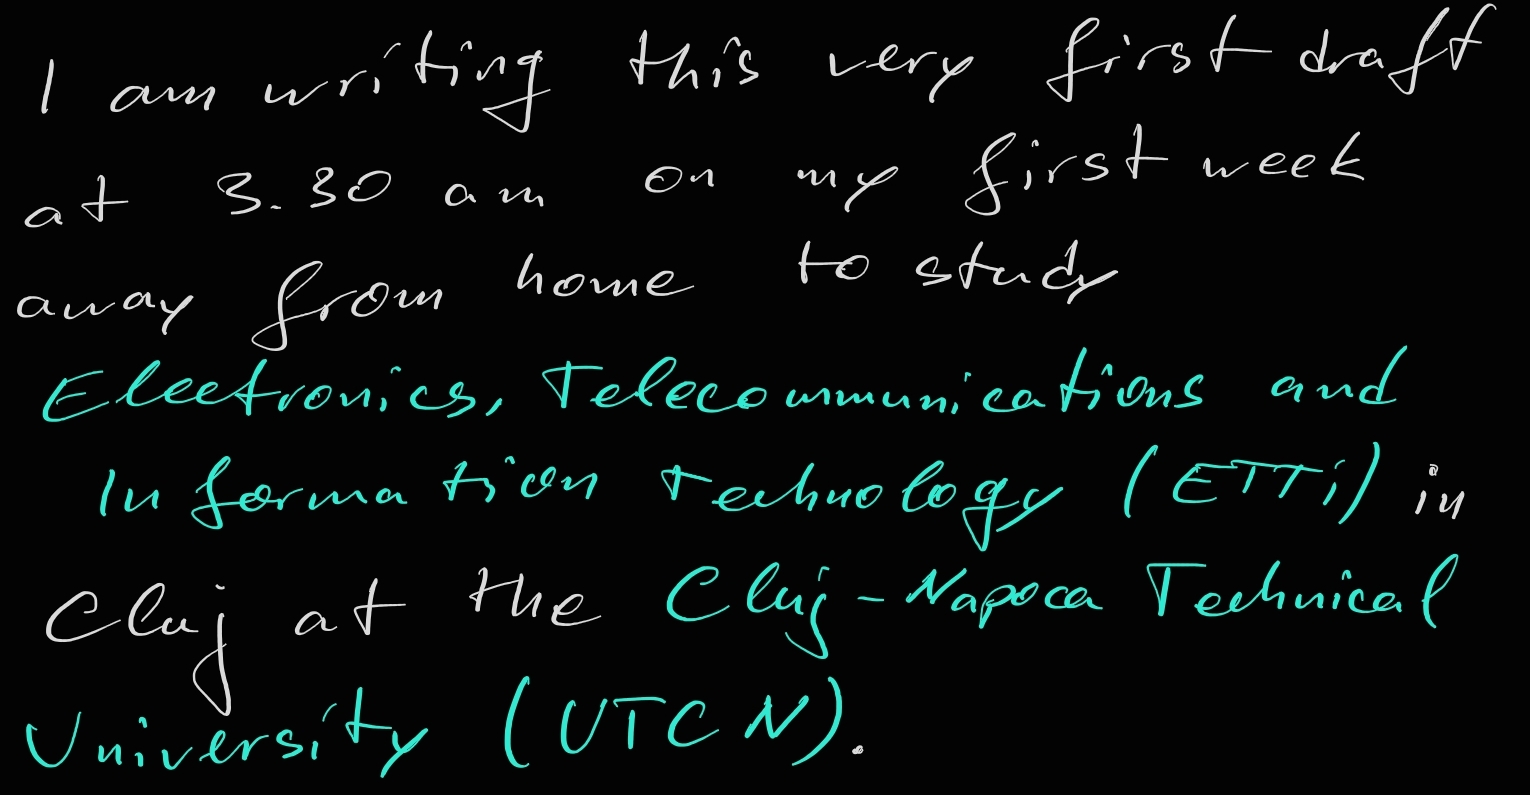 I am writing this very first draft
at 3.30 am on my first week
away from home to study
Electronics, Telecommunications and
Information Technology (ETTi) in
Cluj at the Cluj-Napoca Technical
University (UTCN).